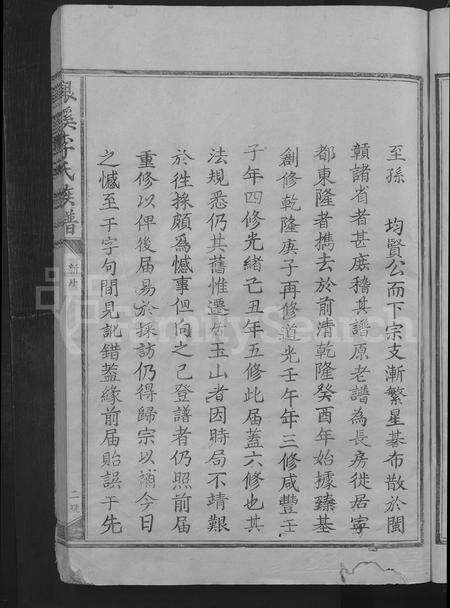 至孫　均賢公而下宗支漸繁星碁布散於閩
贛諸省者甚庶稽其譜原老譜為長房徙居寧
都東隆者携去於前清乾隆癸酉年始據臻基
創修乾隆庚子再修道光壬午年三修咸豐壬
子年四修光緒己丑年五修此届葢六修也其
法規悉仍其舊惟遷居玉山者因時局不靖艱
於徃採頗為憾事但向之已登譜者仍照前届
重修以俾後届易於採訪仍得歸宗以補今日
之憾至于字句間見訛錯葢緣前届貽誤于先
銀溪李氏族譜
新生
FamilySearch